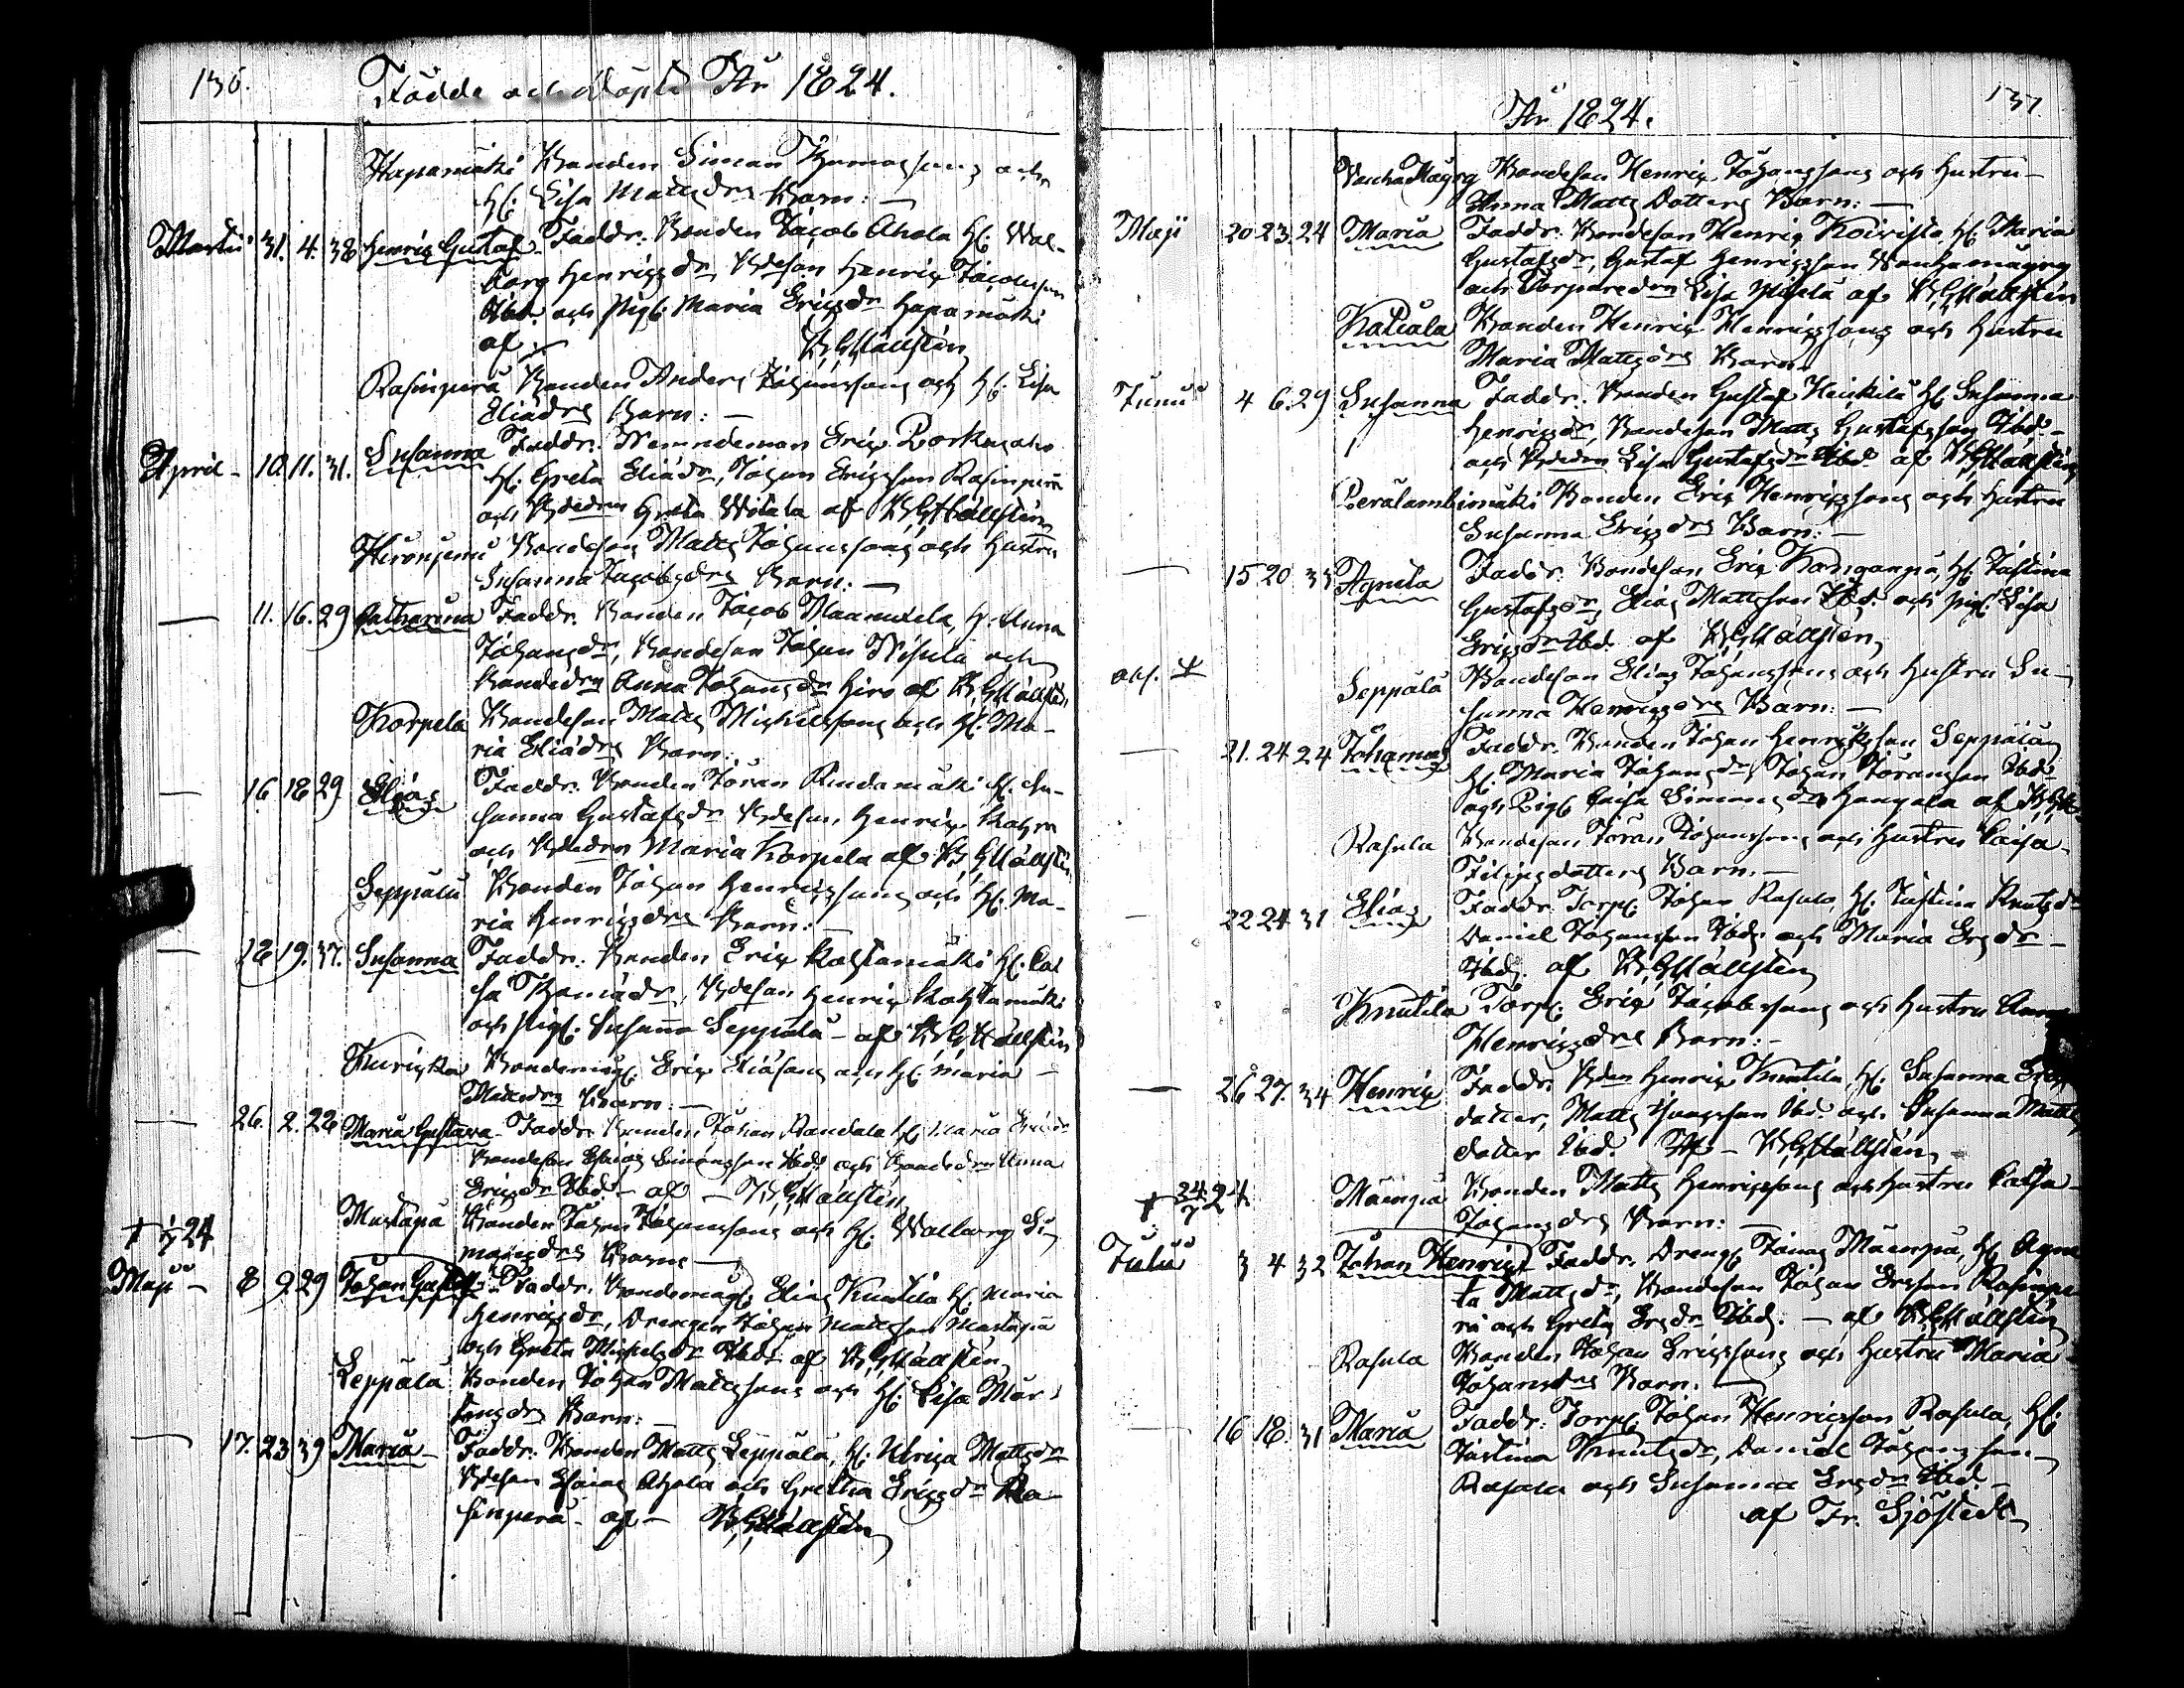 136. Födde och Döpte År 1824.
Hapamäki Bonden Simon Thomassons och
H: Lisa Mattsdrs Barn: —
Martii 31. 4. 38 Henric Gustaf Faddr: Bonden Jacob Ahola H: Wal-
borg Henricsdr, Bdeson Henric Jacobsson
Ibd. och Pig: Maria Ericsdr Hapamäki
af B. G. Hällsten
Rasinperä Bonden Anders Johanssons och H: Lisa
Eliædrs Barn: —
April - 10. 11. 31. Susanna Faddr: Nemndeman Eric Porkkaaho
H: Greta Eliædr, Johan Ericsson Rasinperä
och Bdedrn Greta Witala af B. G. Hällsten
Hironjemi Bondesons Matts Johanssons och Hustru
Susanna Jacobsdrs Barn: —
— 11. 16. 29 Catharina Faddr. Bonden Jacob Maanuela, H: Anna
Johansdr, Bondeson Johan Nisula och
Bondedrn Anna Johansdr Hiro af B. G. Hällsten
Korpela Bondeson Matts Michelssons och H: Ma-
ria Eliædrs Barn:
— 16 18 29 Elias Faddr: Bonden Jöran Rindamäki H: Su-
sanna Gustafsdr Bdeson Henric
och Bdedrn Maria Korpela af B. G. Hällsten
Seppälä Bonden Johan Henricssons och H: Ma-
ria Henricsdrs Barn: —
— 18 19. 37. Susanna Faddr: Bonden Eric H: Cai
sa Thomædr, Bdeson Henric
och Pig: Susanna Seppälä - af B. G. Hällsten
Kuricka Bondemåg: Eric Eliæsons och H: Maria —
Mattsdrs Barn: —
— 26. 2. 22 Maria Gustava Faddr. Bonden Johan Randala H: Maria
Bondeson Esaias Simonsson Ibd: och Bondedrn Anna
Ericsdr Ibd: — af — B. G. Hällsten
Mustapä Bonden Johan Johanssons och H: Walborg Si-
monsdrs Barn —
Maji - 8 9. 29 Johan Gustaf Faddr. Bondemåg: Elias Knutila H: Maria
Henricsdr, Drengen Johan Mattsson Mustapä
och Greta Michelsdr Ibd: af B. G. Hällsten
Leppälä Bonden Johan Mattssons och H: Lisa Mår-
tensdrs Barn: —
— 17. 23 39 Maria Faddr: Bonden Matts Leppälä, H: Ulrica Mattsdr
Bdeson Esaias Ahola och Gretha Ericsdr Ra-
sinperä - af — B. G. Hällsten
År 1824. 137.
Bondeson Henric Johanssons och Hustru —
Anna Matts Dotters Barn: —
Maji 20 23. 24 Maria Faddr: Bondeson Henric Koivisto, H: Maria
Gustafsdr, Gustaf Henricsson
och Torparedrn Lisa af B. G. Hällsten
Katiala Bonden Henric Henricssons och Hustru
Maria Mattsdrs Barn
Junii 4 6. 29 Susanna Faddr. Bonden Gustaf Heickilä H: Susanna
Henricsdr, Bondeson Matts Gustafsson Ibd: —
och Bdedrn Lisa Gustafsdr Ibd: af B. G. Hällsten
Perälambimäki Bonden Eric Henricssons och Hustru
Susanna Ericsdrs Barn: —
— 15 20 35 Agneta Faddr: Bondeson Eric Kanganpä, H: Justina
Gustafsdr, Elias Mattsson Ibd. och Pig: Lisa
Ericsdr Ibd. af B. G. Hällsten
Seppälä Bondeson Elias Johanssons och Hustru Su-
sanna Henricsdrs Barn: —
— 21. 24 24 Johannes Faddr: Bonden Johan Henricsson Seppälä
H: Maria Johansdr, Johan Göransson Ibd
och Pig: Caisa Simonsdr Kangala af B. G. H.
Rasula Bondeson Jöran Johanssons och Hustru Caisa
Filipsdotters Barn. —
— 22 24 31 Elias Faddr: Torp: Johan Rasula, H: Justina Knutsdr
Daniel Johansson Ibd: och Maria Ersdr —
Ibd: af B. G. Hällsten
Knutila Torp: Eric Jacobssons och Hustru Anna
Henricsdrs Barn: —
— 26 27. 34 Henric Faddr: Bden Henric Knutila, H: Susanna Erics
dotter, Matts Ibd: och Susanna Matts
dotter Ibd: Af — B. G. Hällsten
Mäenpä Bonden Matts Henricssons och Hustru Caisa
Johansdrs Barn: —
Julii 3 4 32 Johan Henric Faddr: Dreng: Jonas Mäenpä, H: Agne
ta Mattsdr, Bondeson Johan Ersson Rasinpe
rä och Greta Ersdr Ibd: — af B. G. Hällsten
Rasula Bonden Johan Ericssons och Hustru Maria
Johansdrs Barn: —
— 16 18. 31 Maria Faddr: Torp: Johan Henricsson Rasula, H:
Justina Knutsdr, Daniel Johansson
Rasula och Susanna Ersdr Ibd: —
af Fr. Sjöstedt